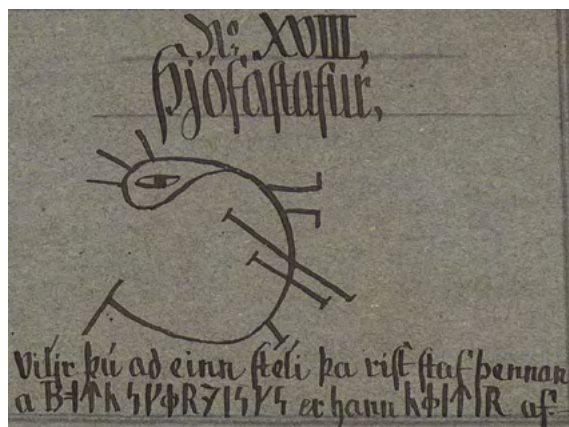 No. XVIII,
Þjófaſtafur,
Viljr þú ad einn ſteli þa riſt ſtaf þennan
a er hann af.